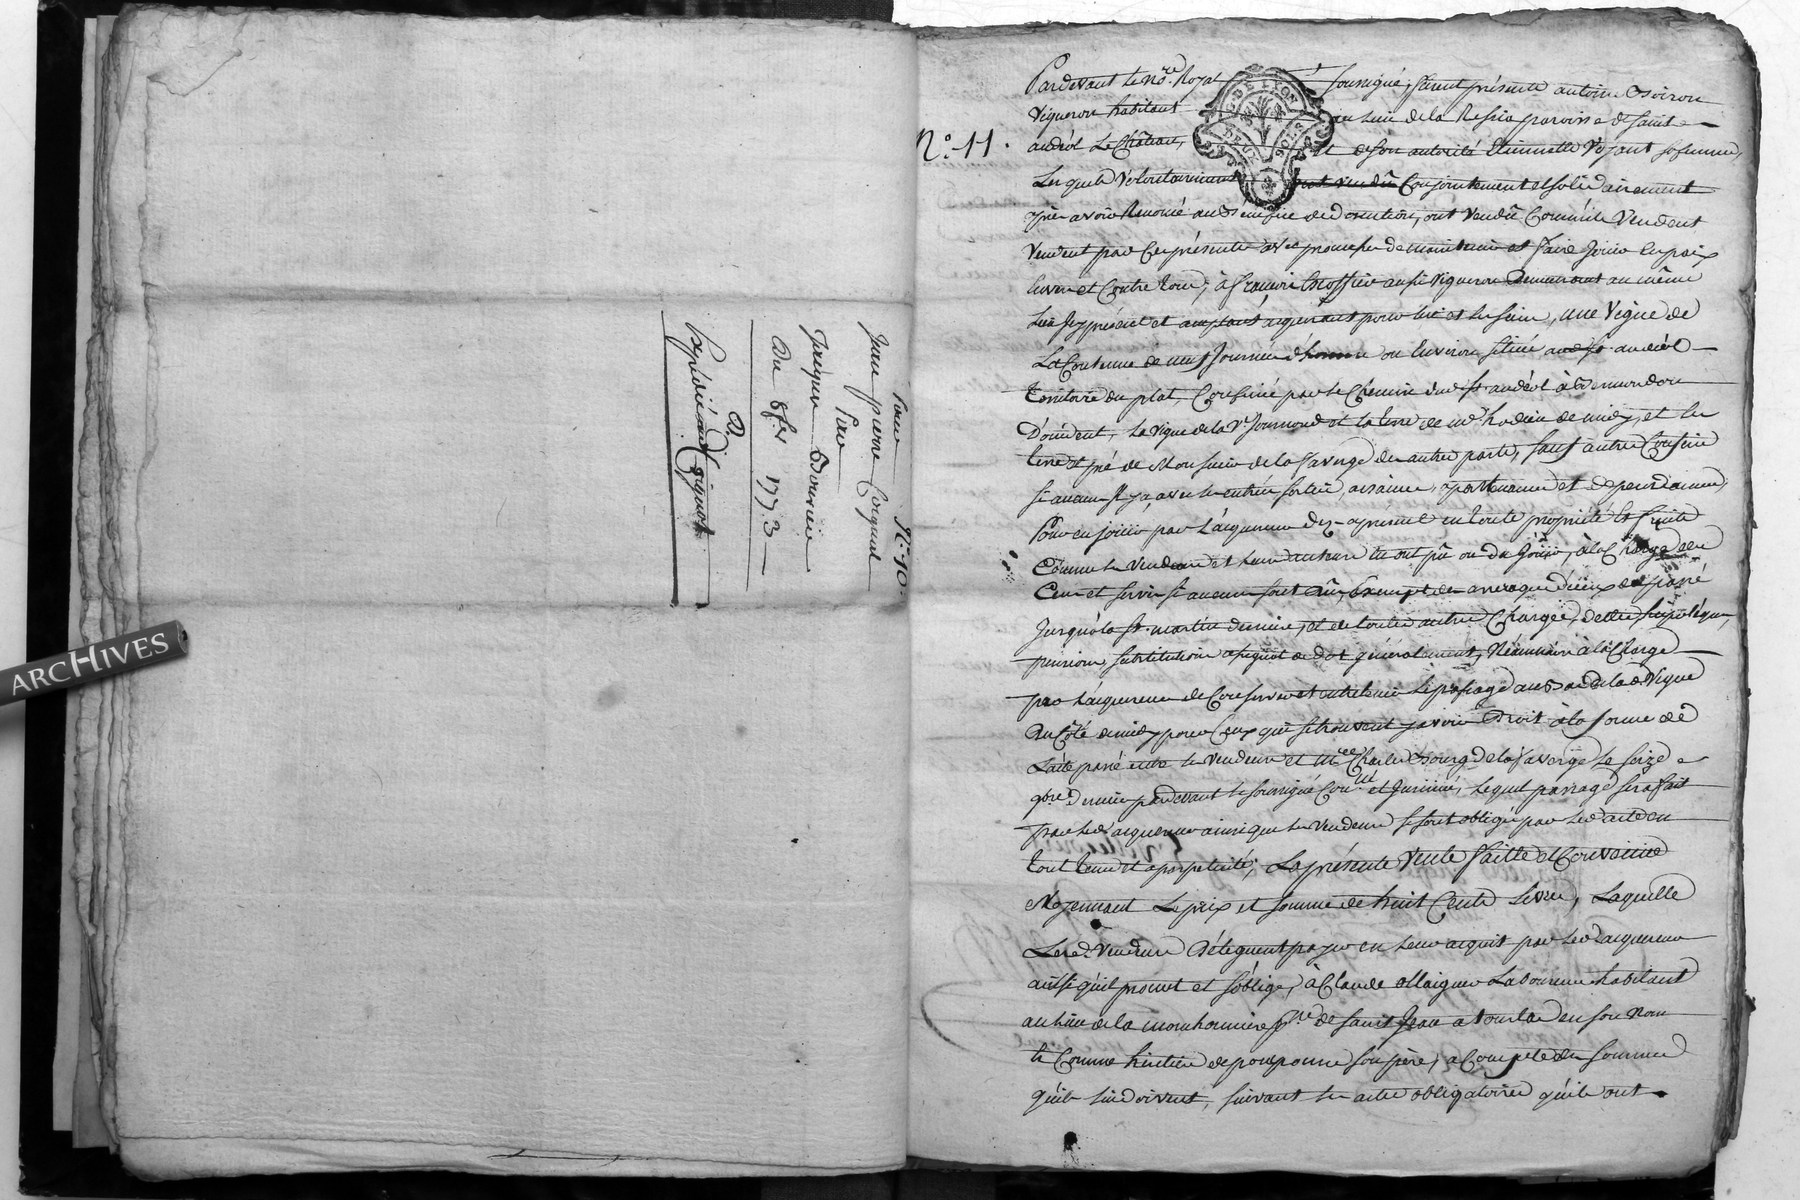 N.° 10.
Pour
Jean pierre Coignet
Par
Jacques
Du 8bre 1773
D
Expédié au d. Coignet
ARCHIVES
N.° 11.
G. DE LYON
DEUX SOLS
Pardevant le no.re Royal soussigné, furent présents antoine
Vigneron habitant au lieu de la paroisse de Saint
andéol Le Château, et de son autorité Etiennette Vojant sa femme,
Lesquels Volontairement ont vendû Conjointement et solidairement
après avoir Renoncé au Bénéfice de discution, ont Vendû Comm'ils Vendent
Vendent par Ces présentes avec promesse de maintenir et faire Joüir en paix
Envers et Contre tous, à françois aussi Vigneron demeurant au même
Lieu Icy présent et aceptant aquereur pour lui et les siens, une Vigne de
La Contenue de neuf Journées d'homme ou Environ située au d. St. andéol
territoire du plat, Confiné par le Chemin dud. St andéol à
D'occident, la Vigne de la V.e Journoud et la terre de m.e de midy, et les
terre et pré de Monsieur de la Faverge des autres parts, sauf autres Confins
si aucuns Il y a, avec ses entrées sorties, aisances, apartenances et dependances,
Pour en joüir par l'aquereur dez-apresent en toute propriété et fruits
Comme les Vendeurs et leurs auteurs en ont pû ou dû Joüir, à la Charge des
Cens et servis si aucuns sont dûs, Exempte des arrerages d'iceux du passé
Jusqu'à la St. martin derniere, et de toutes autres Charges, dettes hipotéques,
pensions, substitutions et généralement, Néanmoins à la Charge
par l'aquereur de Conserver et entretenir le passage au bas de lad. Vigne
Du Côté de midy pour Ceux qui se trouvent y avoir Droit à la forme de
L'acte passé entre les Vendeurs et M.re Charles de la Faverge le seize
9bre dernier pardevant le soussigné Con.er et Jurinié, lequel passage sera fait
par led. aquereur ainsi que les Vendeurs se sont obligés par led. acte en
tout tems et à perpétuité; La présente Vente faitte et Convenüe
Moyennant Le prix et somme de huit Cents Livres, Laquelle
Lesd. Vendeurs Délèguent payer en leur aquit par led. aquereur
ainsi qu'il promet et s'oblige, à Claude Laboureur habitant
au lieu de la p.sse de Saint Jean a en son Nom
et Comme héritier de son père, à Compte des sommes
qu'ils lui doivent, suivant les actes obligatoires qu'ils ont